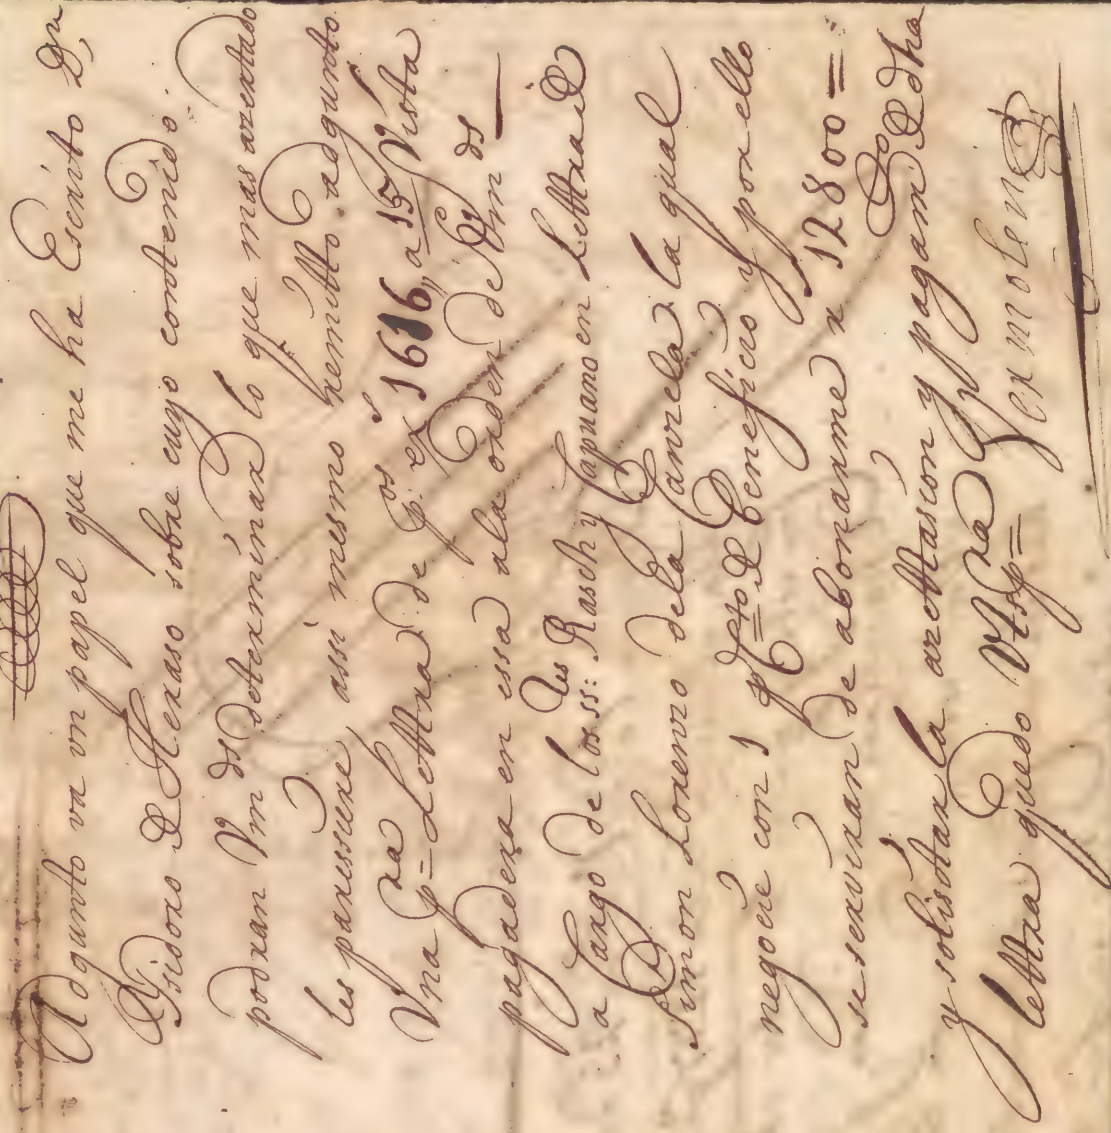 Adgunto va un papel que me ha Escrito Dn
Ysidoro De Heraso sobre cuyo contenido
podran Vm ds determinar lo que mas arertado
les paressiere, assi mesmo remitto adgunto
Vna pra Lettra de pos ex 1616,, a 15 Vista
pagadera en essa ala orden de Vm ds
a Cargo de los ss: Rasch y Capuano en Lettra de
Simon Lorenro dela Canrela la qual
negocie con 1 pcto de Beneficio y por ello
se serviran de abonarme x 12800 =
y solisitar la arettasion y pagam to De dha
lettra quedo